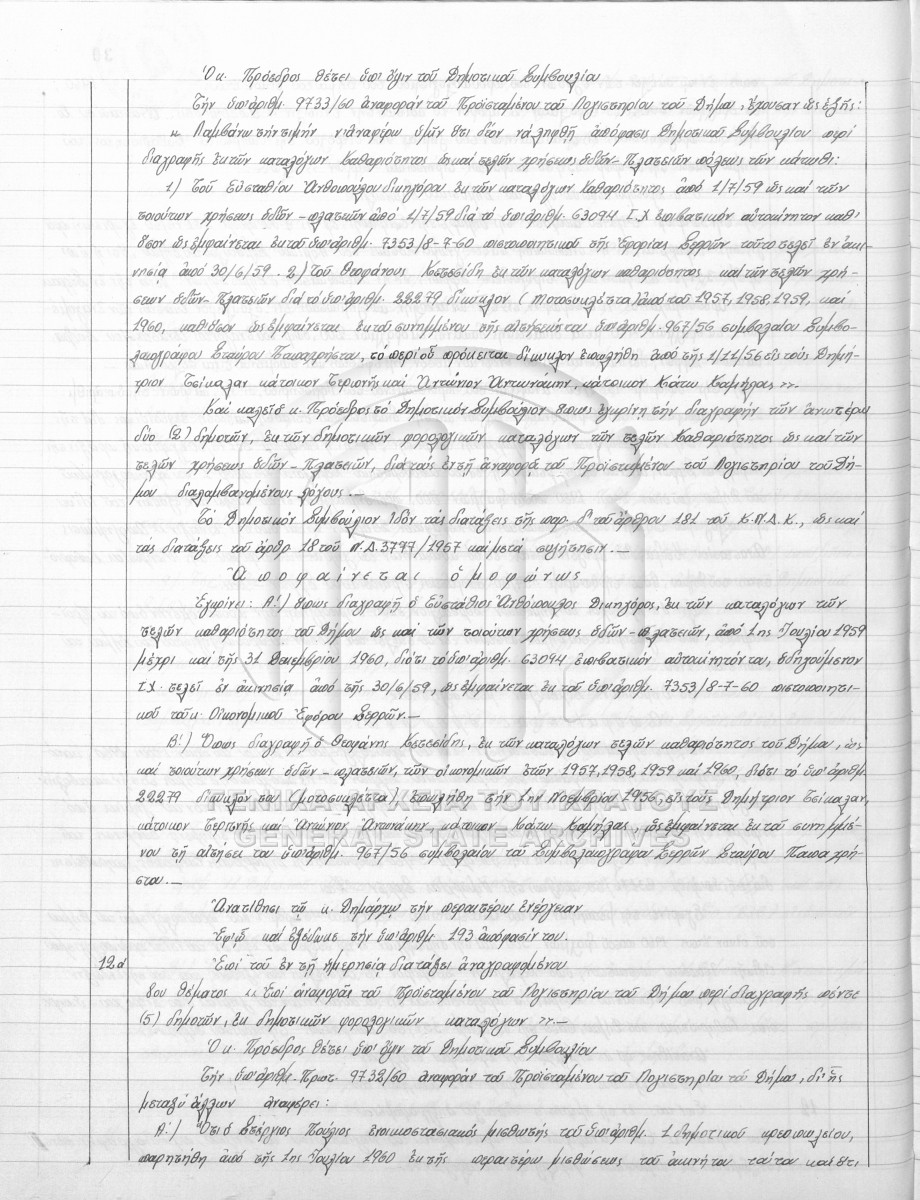 Ὁ κ. Πρόεδρος θέτει ὑπ' ὄψιν τοῦ Δημοτικοῦ Συμβουλίου
Τήν ὑπ' ἀριθμ. 9733/60 ἀναφοράν τοῦ Προϊσταμένου τοῦ Λογιστηρίου τοῦ Δήμου, ἔχουσαν ὡς ἑξῆς:
" Λαμβάνω τήν τιμήν ν' ἀναφέρω ὑμῖν ὅτι δέον νά ληφθῇ ἀπόφασις Δημοτικοῦ Συμβουλίου περί
διαγραφῆς ἐκ τῶν καταλόγων Καθαριότητος ὡς καί τελῶν χρήσεως ὁδῶν-Πλατειῶν πόλεως τῶν κάτωθι:
1) Τοῦ Εὐσταθίου Ἀνθοπούλου δικηγόρου ἐκ τῶν καταλόγων Καθαριότητος ἀπό 1/7/59 ὡς καί τῶν
τοιούτων χρήσεως ὁδῶν-πλατειῶν ἀπό 1/7/59 διά τό ὑπ' ἀριθμ. 63094 Ι.Χ ἐπιβατικόν αὐτοκίνητον καθ'
ὅσον ὡς ἐμφαίνεται ἐκ τοῦ ὑπ' ἀριθμ. 7353/8-7-60 πιστοποιητικοῦ τῆς Ἐφορίας Σερρῶν τοῦτο τελεῖ ἐν ἀκι-
νησίᾳ ἀπό 30/6/59. 2) τοῦ Θεοφάνους Κετσεσίδη ἐκ τῶν καταλόγων καθαριότητος καί τῶν τελῶν χρή-
σεων ὁδῶν-Πλατειῶν διά τό ὑπ' ἀριθμ. 22279 δίκυκλον (μοτοσυκλέττα) ἀπό τοῦ 1957, 1958, 1959, καί
1960, καθ' ὅσον ὡς ἐμφαίνεται ἐκ τοῦ συνημμένου τῆς αἰτήσεώς του ὑπ' ἀριθμ. 967/56 συμβολαίου Συμβο-
λαιογράφου Σταύρου Παπαχρήστου, τό περί οὗ πρόκειται δίκυκλον ἐπωλήθη ἀπό τῆς 1/11/56 εἰς τούς Δημή-
τριον Τσίκαλαν κάτοικον Τερπνῆς καί Ἀντώνιον Ἀντωνάκην, κάτοικον Κάτω Καμήλας ".
Καί καλεῖ ὁ κ. Πρόεδρος τό Δημοτικόν Συμβούλιον ὅπως ἐγκρίνῃ τήν διαγραφήν τῶν ἀνωτέρω
δύο (2) δημοτῶν, ἐκ τῶν δημοτικῶν φορολογικῶν καταλόγων τῶν τελῶν Καθαριότητος ὡς καί τῶν
τελῶν χρήσεως ὁδῶν-Πλατειῶν, διά τούς ἐν τῇ ἀναφορᾷ τοῦ Προϊσταμένου τοῦ Λογιστηρίου τοῦ Δή-
μου διαλαμβανομένους λόγους.—
Τό Δημοτικόν Συμβούλιον ἰδόν τάς διατάξεις τῆς παρ. δ' τοῦ ἄρθρου 181 τοῦ Κ.Π.Δ.Κ., ὡς καί
τάς διατάξεις τοῦ ἄρθρ 18 τοῦ Ν.Δ. 3777/1957 καί μετά συζήτησιν.—
Ἀποφαίνεται ὁμοφώνως
Ἐγκρίνει: Α'.) ὅπως διαγραφῇ ὁ Εὐστάθιος Ἀνθόπουλος Δικηγόρος, ἐκ τῶν καταλόγων τῶν
τελῶν καθαριότητος τοῦ Δήμου ὡς καί τῶν τοιούτων χρήσεως ὁδῶν-πλατειῶν, ἀπό 1ης Ἰουλίου 1959
μέχρι καί τῆς 31 Δεκεμβρίου 1960, διότι τό ὑπ' ἀριθμ. 63094 ἐπιβατικόν αὐτοκίνητόν του, ὁδηγούμενον
Ι.Χ. τελεῖ ἐν ἀκινησίᾳ ἀπό τῆς 30/6/59, ὡς ἐμφαίνεται ἐκ τοῦ ὑπ' ἀριθμ. 7353/8-7-60 πιστοποιητι-
κοῦ τοῦ κ. Οἰκονομικοῦ Ἐφόρου Σερρῶν.—
Β'.) Ὅπως διαγραφῇ ὁ Θεοφάνης Κετσεσίδης, ἐκ τῶν καταλόγων τελῶν καθαριότητος τοῦ Δήμου, ὡς
καί τοιούτων χρήσεως ὁδῶν-πλατειῶν, τῶν οἰκονομικῶν ἐτῶν 1957, 1958, 1959 καί 1960, διότι τό ὑπ' ἀριθμ
22279 δίκυκλόν του (μοτοσυκλέττα) ἐπωλήθη τήν 1ην Νοεμβρίου 1956, εἰς τούς Δημήτριον Τσίκαλαν,
κάτοικον Τερπνῆς καί Ἀντώνιον Ἀντωνάκην κάτοικον Κάτω Καμήλας, ὡς ἐμφαίνεται ἐκ τοῦ συνημμέ-
νου τῇ αἰτήσει του ὑπ' ἀριθμ. 967/56 συμβολαίου τοῦ Συμβολαιογράφου Σερρῶν Σταύρου Παπαχρή-
στου.—
Ἀνατίθησι τῷ κ. Δημάρχῳ τήν περαιτέρω ἐνέργειαν
Ἐφ' ᾧ καί ἐξέδωκε τήν ὑπ' ἀριθμ 193 ἀπόφασίν του.
12α Ἐπί τοῦ ἐν τῇ ἡμερησίᾳ διατάξει ἀναγραφομένου
8ου θέματος " Ἐπί ἀναφορᾶς τοῦ Προϊσταμένου τοῦ Λογιστηρίου τοῦ Δήμου περί διαγραφῆς πέντε
(5) δημοτῶν, ἐκ δημοτικῶν φορολογικῶν καταλόγων ".—
Ὁ κ. Πρόεδρος θέτει ὑπ' ὄψιν τοῦ Δημοτικοῦ Συμβουλίου
Τήν ὑπ' ἀριθμ. Πρωτ. 9732/60 ἀναφοράν τοῦ Προϊσταμένου τοῦ Λογιστηρίου τοῦ Δήμου, δι' ἧς
μεταξύ ἄλλων ἀναφέρει:
Α'.) Ὅτι ὁ Στέργιος Πούλιος ἐνοικιοστασιακός μισθωτής τοῦ ὑπ' ἀριθμ. 1 δημοτικοῦ κρεοπωλείου,
παρητήθη ἀπό τῆς 1ης Ἰουλίου 1960 ἐκ τῆς περαιτέρω μισθώσεως τοῦ ἀκινήτου τούτου καί ὅτι
ΓΕΝΙΚΑ ΑΡΧΕΙΑ ΤΟΥ ΚΡΑΤΟΥΣ
GENERAL STATE ARCHIVES